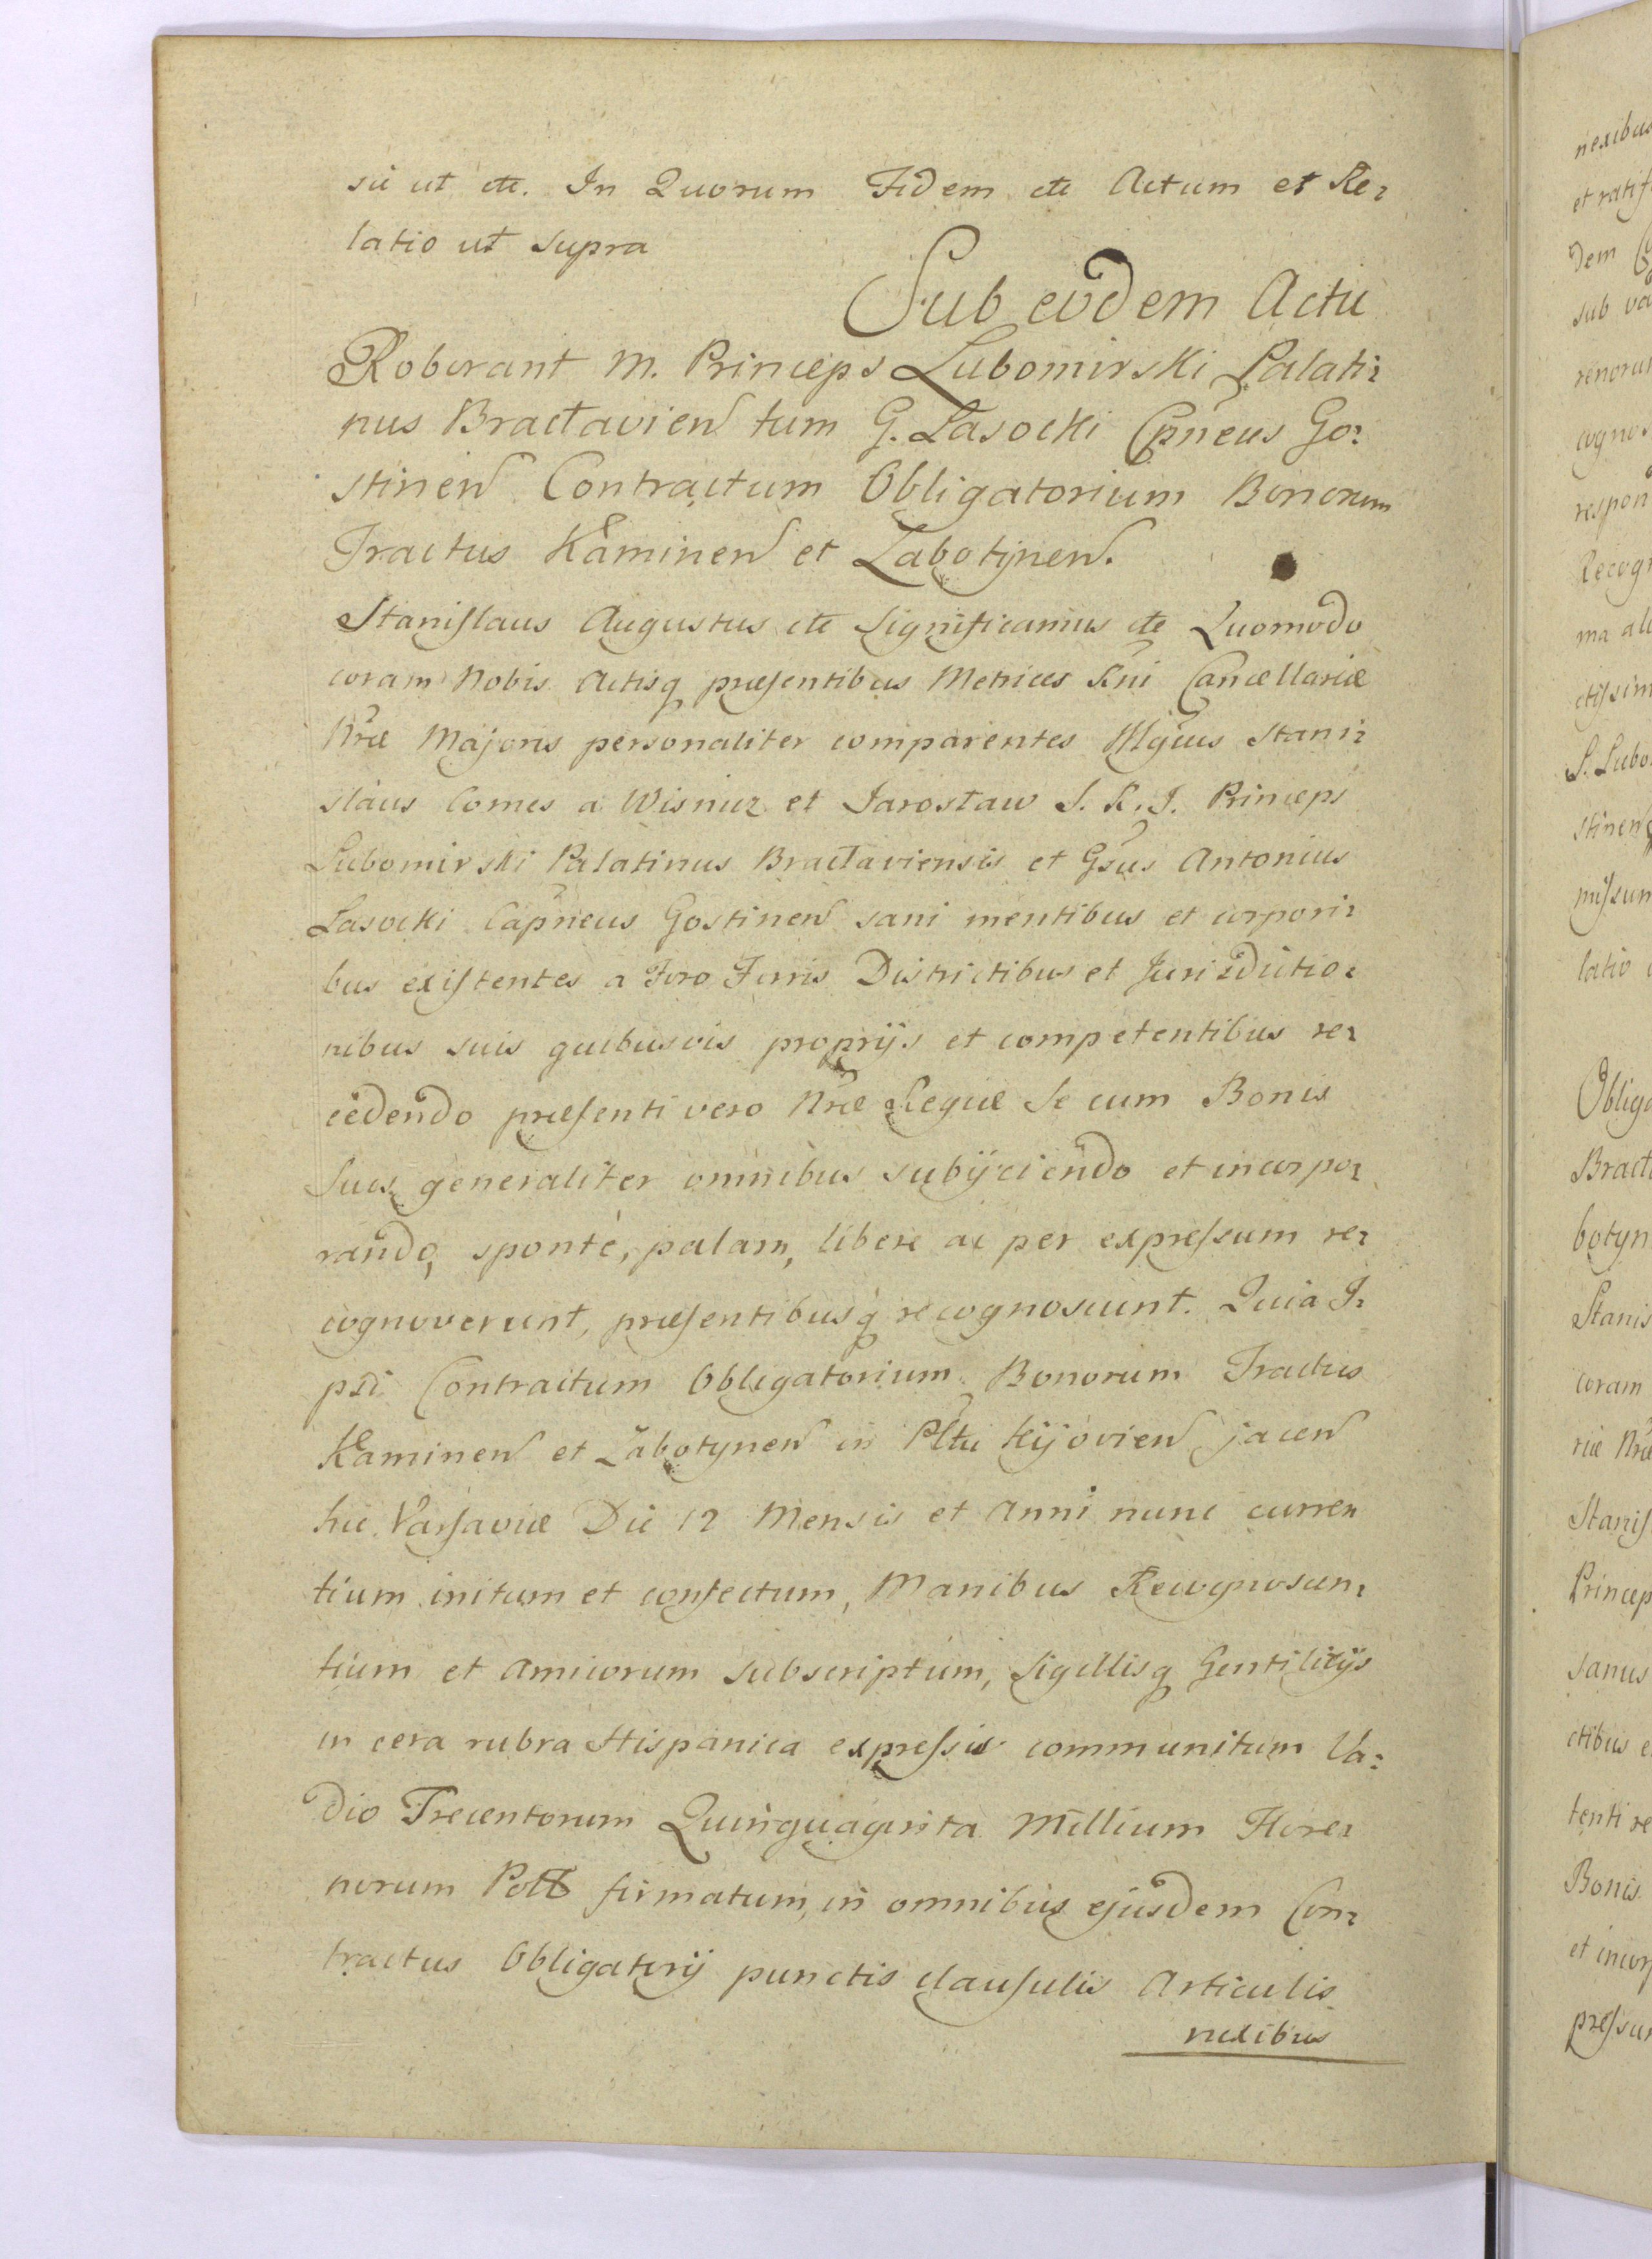 su ut etc. In Quorum Fidem etc Actum et Re-
latio ut supra
Sub eodem Actu
Roborant M. Princeps Lubomirski Palati-
nus Bractavien tum G. Lasocki Cpneus Go-
stinen Contractum Obligatorium Bonorum
Tractus Kaminen et Zabotynen.
Stanislaus Augustus etc Significamus etc Quomodo
coram Nobis Actisq præsentibus Metrices Rni Cancellariæ
Nræ Majoris personaliter comparentes Mgcus Stani-
slaus Comes a Wisnicz et Jarosław S. R. I. Princeps
Lubomirski Palatinus Bracłaviensis et Gsus Antonius
Lasocki Capneus Gostinen sani mentibus et corpori-
bus existentes a Foro Terris Districtibus et Jurisdictio-
nibus suis quibusvis proprijs et competentibus re-
cedendo præsenti vero Nræ Regiæ Se cum Bonis
Suis generaliter omnibus subijciendo et incorpo-
rando, sponte, palam, libere ac per expressum re-
cognoverunt, præsentibusq recognoscunt. Quia I-
psi Contractum Obligatorium Bonorum Tractus
Kaminen et Zabotynen in Pltu Kijovien jacen
hic Varsaviæ Die 12 Mensis et Anni nunc curren
tium initum et confectum, Manibus Recognoscen-
tium et Amicorum subscriptum, Sigillisq Gentilitijs
in cera rubra Hispanica expressis communitum Va-
dio Trecentorum Quinquaginta Millium Flore-
norum Poll firmatum, in omnibus ejusdem Con-
tractus Obligatorij punctis clausulis Articulis
nexibus